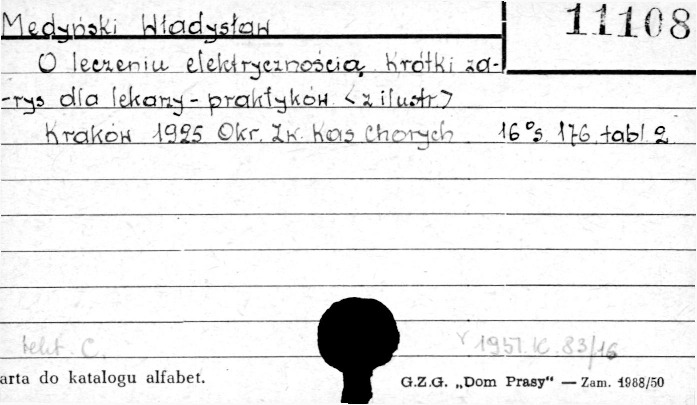 Medyński Władysław 11108
O leczeniu elektrycznością. Krótki za-
-rys dla lekarzy-praktyków <z ilustr.>
Kraków 1925 Okr. Zw. Kas Chorych 16° s. 176, tabl. 2
C. 1951.K.83/16
arta do katalogu alfabet. G.Z.G. „Dom Prasy" — Zam. 1988/50